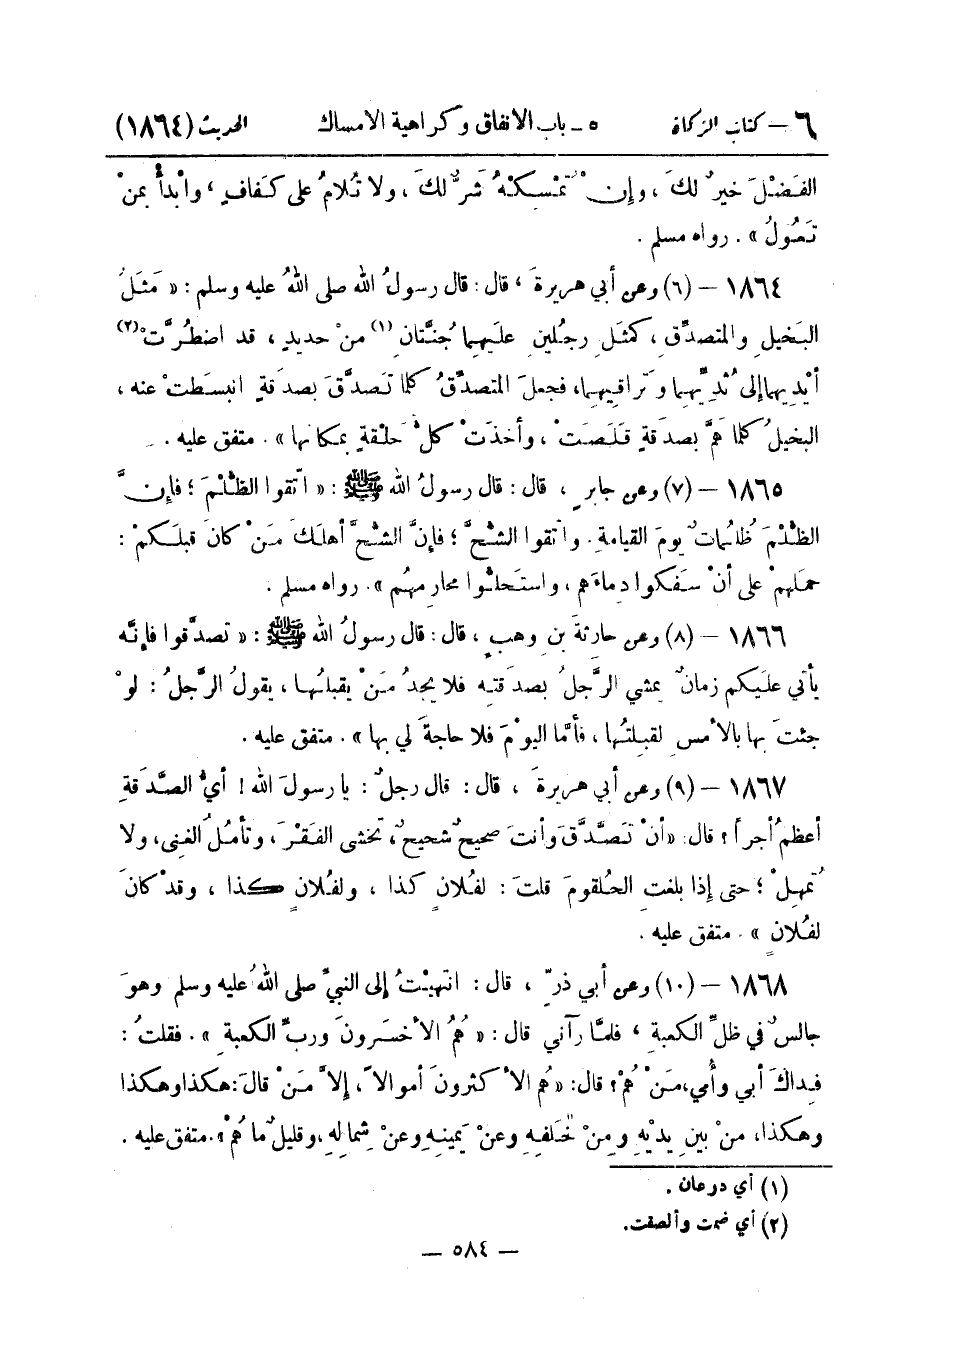 ٦ – كتاب الزكاة ٥ - باب الانفاق وكراهية الامساك الحديث (١٨٦٤)
الفَضْلَ خيرٌ لكَ ، وإِنْ تمْسكْهُ شرٌّ لكَ ، ولا تُلامُ على كَفافٍ ، وابْدأْ بمنْ
تَعُولُ » . رواه مسلم .
١٨٦٤ – (٦) وعن أبي هريرةَ ، قال : قال رسولُ الله صلى اللهُ عليه وسلم : « مَثَلُ
البَخيلِ والمتصدِّقِ ، كمثَلِ رجُلينِ علَيهِما جُنَّتانِ (١) منْ حديدٍ ، قد اضطُرَّتْ (٢)
أيْديهِما إلى ثُدِيِّهِما وتَراقيهِما، فجعلَ المتصدِّقُ كلما تَصدَّقَ بصدَقةٍ انبسَطتْ عنه ،
البخيلُ كلما همَّ بصدقةٍ قَلَصَتْ ، وأخذَتْ كلُّ حلْقةٍ بمكانها » . متفق عليه .
١٨٦٥ – (٧) وعن جابرٍ ، قال : قال رسولُ الله ﷺ : « اتَّقوا الظُّلْمَ ؛ فإِنَّ
الظُّلْمَ ظُلُماتٌ يومَ القيامةِ . واتَّقوا الشُّحَّ ؛ فإنَّ الشُّحَّ أهلَكَ مَنْ كانَ قبلَكمْ :
حملَهمْ على أنْ سَفكوا دِماءَهم ، واستَحلُّوا محارِمهُم » . رواه مسلم .
١٨٦٦ – (٨) وعن حارثةَ بنِ وهبٍ ، قال : قال رسولُ الله ﷺ : « تصدَّقوا فإِنَّه
يأتي علَيكم زمانٌ يمشي الرَّجلُ بصدقتِه فلا يجدُ مَنْ يقبلُها ، يقولُ الرَّجلُ : لوْ
جئتَ بها بالأمْسِ لقبِلتُها ، فأمَّا اليوْمَ فلا حاجةَ لي بها » . متفق عليه .
١٨٦٧ – (٩) وعن أبي هريرةَ ، قال : قال رجلٌ : يا رسولَ الله ! أيُّ الصَّدَقةِ
أعظمُ أجراً ؟ قال: «أنْ تَصدَّقَ وأنتَ صحيحٌ شحيحٌ، تخشى الفَقْرَ ، وتأمُلُ الغِنى، ولا
تُمهِلْ ؛ حتى إذا بلغتِ الحُلقومَ قلتَ : لفُلانٍ كذا ، ولفُلانٍ كذا ، وقدْ كانَ
لفُلانٍ » . متفق عليه .
١٨٦٨ – (١٠) وعن أبي ذرٍّ ، قال : انتهيْتُ إلى النبيِّ صلى اللهُ عليه وسلم وهوَ
جالسٌ في ظلِّ الكعبةِ ، فلمَّا رآني قال : « هُمُ الأخْسَرونَ وربِّ الكعبةِ » . فقلتُ :
فِداكَ أبي وأُمي، مَنْ هُمْ؟ قال: «هُم الأكثرونَ أموالاً ، إلاَّ مَنْ قالَ: هكذا وهكذا
وهكذا، منْ بينِ يديْهِ ومِنْ خلفهِ وعنْ يمينِهِ وعنْ شمالِهِ، وقليلٌ ما هُمْ» . متفق عليه .
(١) أي درعان .
(٢) أي ضمت وألصقت.
— ٥٨٤ —